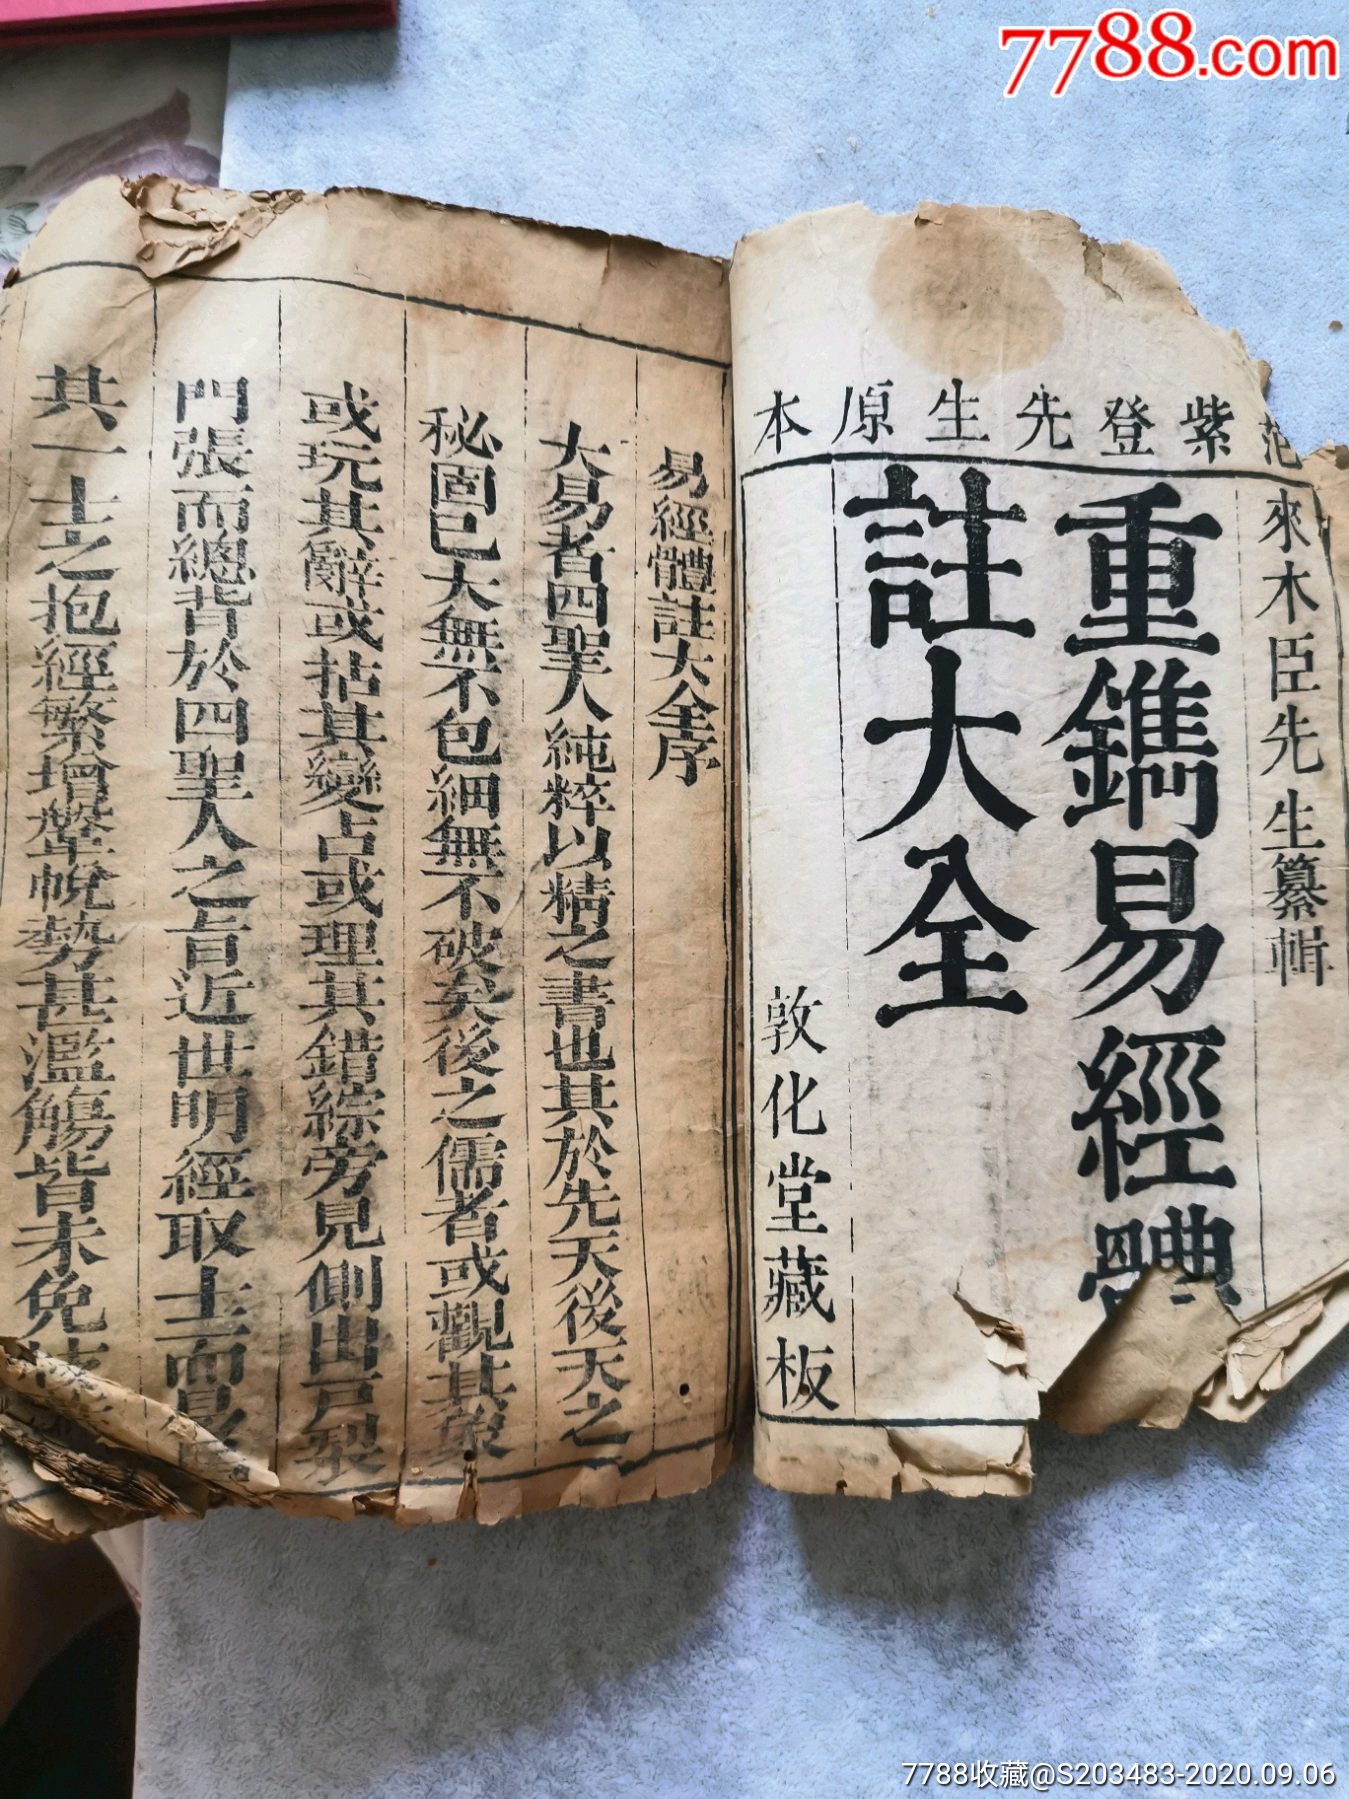 7788.com
范紫登先生原本
來木臣先生纂輯
重鐫易經體
註大全
敦化堂藏板
易經體註大全序
大易者四聖人純粹以精之書也其於先天後天之
秘固已大無不包細無不破矣後之儒者或觀其象
或玩其辭或拈其變占或理其錯綜旁見側出戸裂
門張而總背於四聖人之旨近世明經取士而
其一士之抱經繁增鞶帨勢甚濫觴皆未免
7788收藏@S203483-2020.09.06